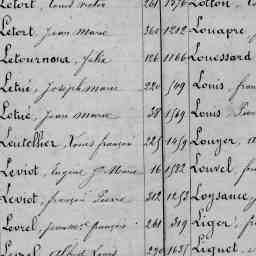 Letort, Louis 261 1876 Lotton,
Letort, Jean Marie 360 1212 Louapre
Letournoux, Julie 126 1166 Louessard
Letué, Joseph Marie 220 549 Louis, fran
Letué, Jean Marie 38 1569 Louis
Leutellier, Louis françois 225 1459 Louyer,
Leviot, Eugène Marie 16 1582 Louvel,
Leviot, françois Pierre 312 1253 Loysance
Levrel, françois 261 319 Liger,
Levrel, Louis 270 1635 Liguet